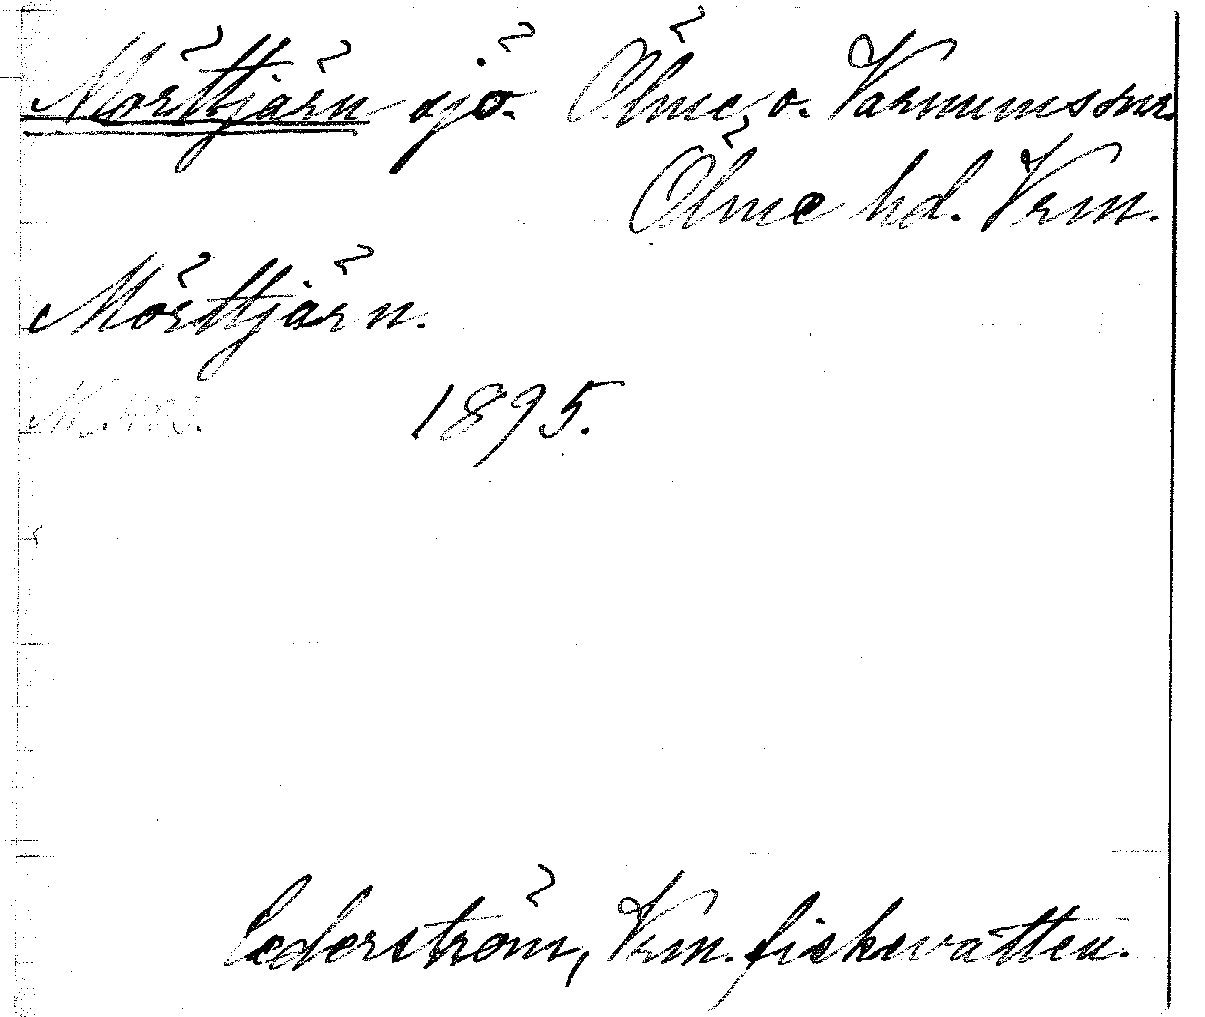 Mörttjärn sjö. Ölme o. Varnumssnr.
Ölme hd. Vrm.
Mörttjärn.
1895.
Cederström, Vrm. fiskevatten.